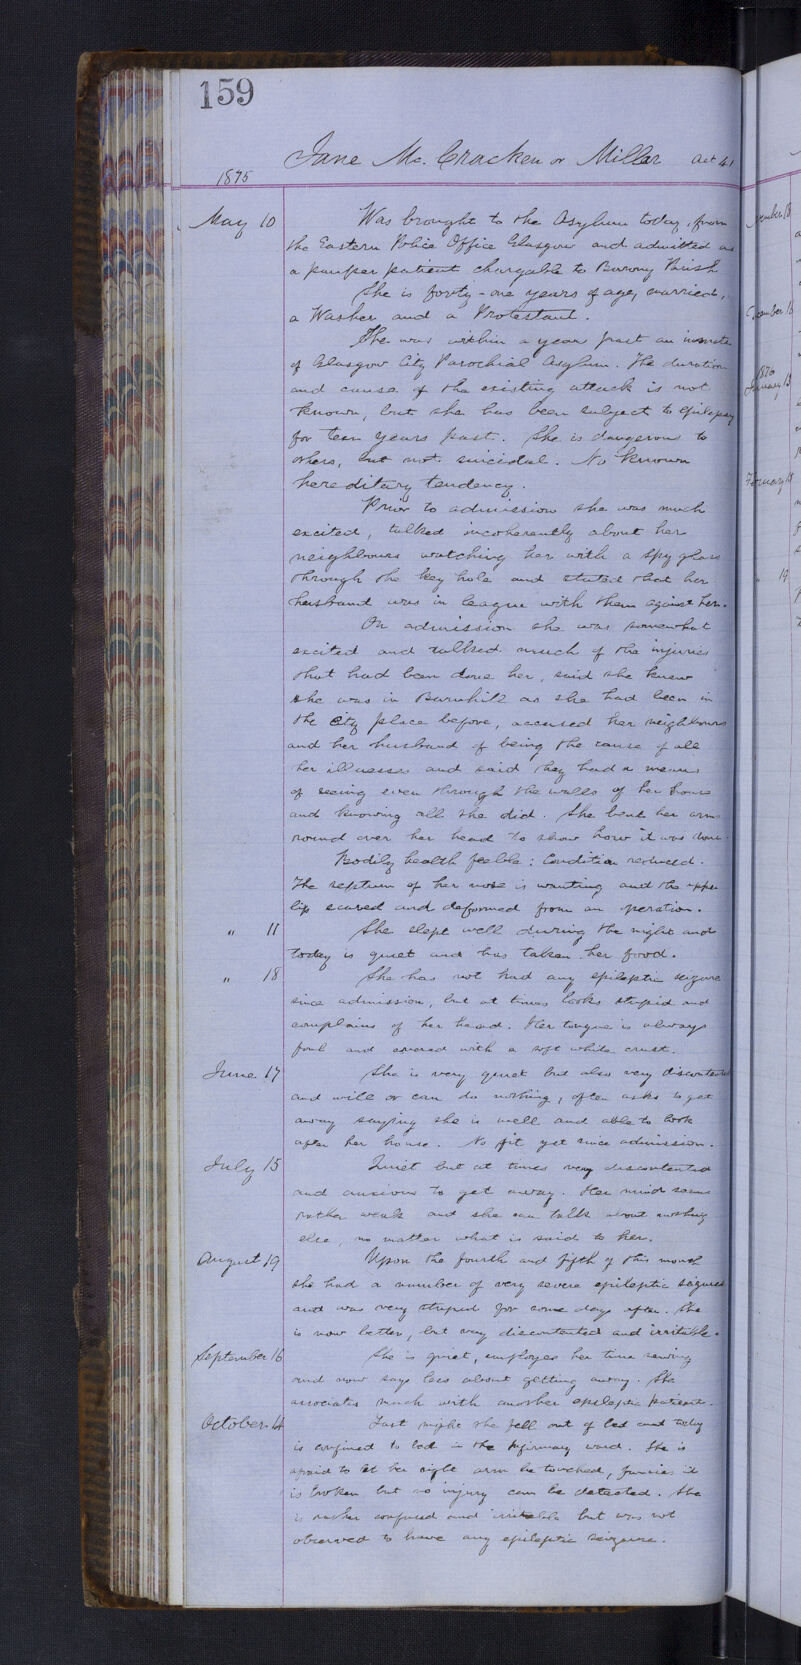 159
Jane Mc. Cracken or Millar aet 41
1875
May 10 Was brought to the Asylum today, from
the Eastern Police Office Glasgow and admitted as
a pauper patient chargable to Barony Parish
She is forty-one years of age, married,
a Washer and a Protestant.
She was within a year past an inmate
of Glasgow City Parochial Asylum. The duration
and cause of the existing attack is not
known, but she has been subject to epilepsy
for ten years past. She is dangerous to
others, but not suicidal. No known
hereditary tendency.
Prior to admission she was much
excited, talked incoherently about her
neighbours watching her with a spy glass
through the key hole and stated that her
husband was in league with them against her.
On admission she was somewhat
excited and talked much of the injuries
that had been done her, said she knew
she was in Barnhill as she had been in
the City place before, accused her neighbours
and her husband of being the cause of all
her illnesses and said they had a means
of seeing even through the walls of her house
and knowing all she did. She bent her arms
round over her head to show how it was done.
Bodily health feeble: Condition reduced.
The septum of her nose is wanting and the upper
lip scared and deformed from an operation.
" 11 She slept well during the night and
today is quiet and has taken her food.
" 18 She has not had any epileptic seizure
since admission, but at times looks stupid and
complains of her head. Her tongue is always
foul and covered with a soft white crust.
June 17 She is very quiet but also very discontented
and will or can do nothing, often asks to get
away saying she is well and able to look
after her house. No fit yet since admission.
July 15 Quiet but at times very discontented
and anxious to get away. Her mind seems
rather weak and she can talk about nothing
else, no matter what is said to her.
August 19 Upon the fourth and fifth of this month
she had a number of very severe epileptic seizures
and was very stupid for some days after. She
is now better, but very discontented and irritable.
September 16 She is quiet, employes her time sewing
and now says less about getting away. She
associates much with another epileptic patient.
October 14 Last night she fell out of bed and today
is confined to bed in the infirmary ward. She is
afraid to let her right arm be touched, fancies it
is broken but no injury can be detected. She
is rather confused and irritable but was not
observed to have any epileptic seizure.
December 16
1876
January 13
February 10
" 19